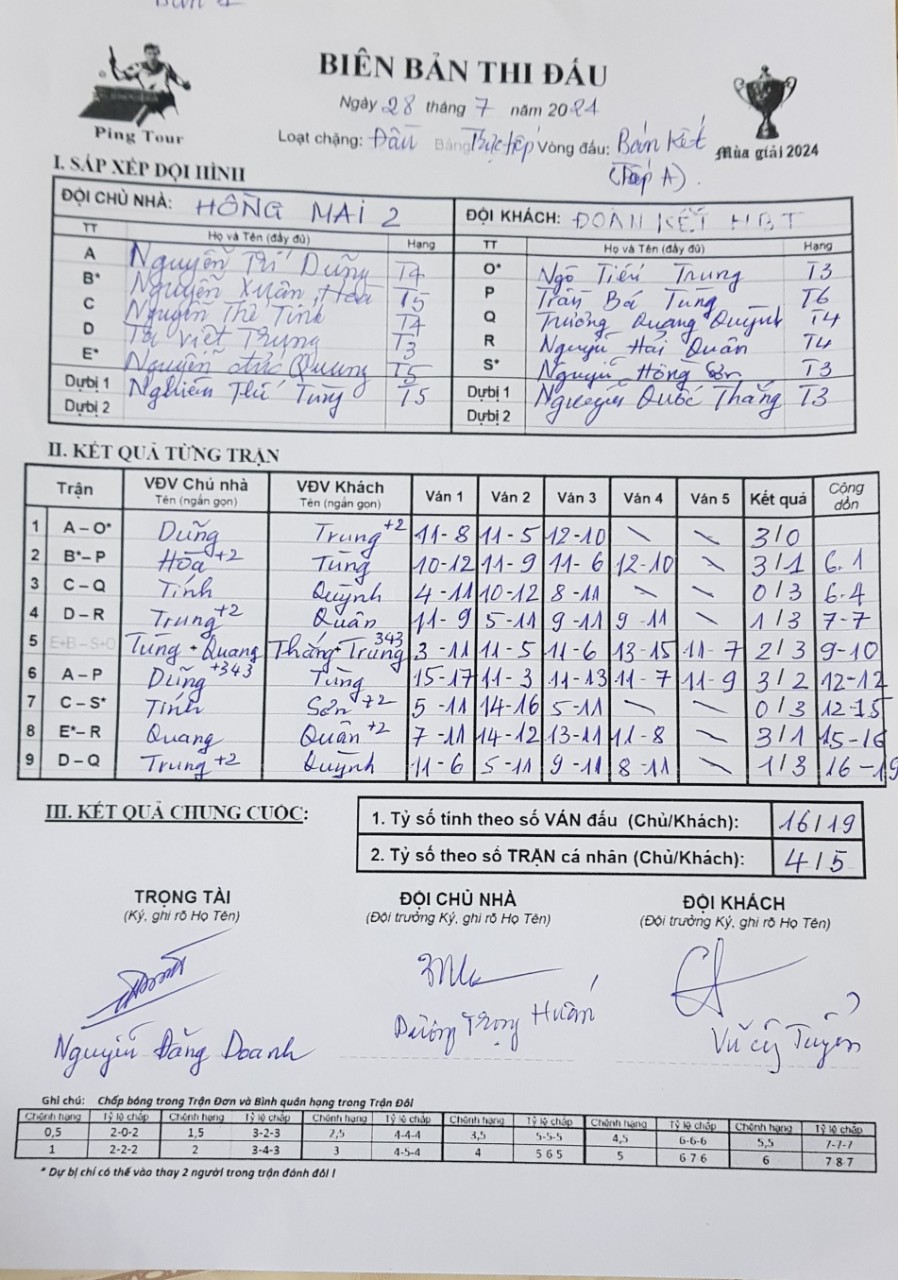 BIÊN BẢN THI ĐẤU
Ping Tour
Ngày 28 tháng 7 năm 2024
Loạt chặng: Đấu Bảng Trực tiếp Vòng đấu: Bán kết
(Tốp A).
Mùa giải 2024
I. SẮP XẾP ĐỘI HÌNH
ĐỘI CHỦ NHÀ: HỒNG MAI 2 ĐỘI KHÁCH: ĐOÀN KẾT HBT
TT Họ và Tên (đầy đủ) Hạng TT Họ và Tên (đầy đủ) Hạng
A Nguyễn Trí Dũng T4 O* Ngô Tiến Trung T3
B* Nguyễn Xuân Hòa T5 P Trần Bá Tùng T6
C Nguyễn Thế Tính T4 Q Trương Quang Quỳnh T4
D Tạ Việt Trung T3 R Nguyễn Hải Quân T4
E* Nguyễn Đức Quang T5 S* Nguyễn Hồng Sơn T3
Dự bị 1 Nghiêm Thế Tùng T5 Dự bị 1 Nguyễn Quốc Thắng T3
Dự bị 2 Dự bị 2
II. KẾT QUẢ TỪNG TRẬN
Trận VĐV Chủ nhà Tên (ngắn gọn) VĐV Khách Tên (ngắn gọn) Ván 1 Ván 2 Ván 3 Ván 4 Ván 5 Kết quả Cộng dồn
1 A – O* Dũng Trung+2 11-8 11-5 12-10 \ \ 3/0
2 B* – P Hòa+2 Tùng 10-12 11-9 11-6 12-10 \ 3/1 6.1
3 C – Q Tính Quỳnh 4-11 10-12 8-11 \ 0/3 6.4
4 D – R Trung+2 Quân 11-9 5-11 9-11 9-11 \ 1/3 7-7
5 E+B – S+O Tùng + Quang Thắng+Trung 343 3-11 11-5 11-6 13-15 11-7 2/3 9-10
6 A – P Dũng+343 Tùng 15-17 11-3 11-13 11-7 11-9 3/2 12-12
7 C – S* Tính Sơn+2 5-11 14-16 5-11 \ \ 0/3 12-15
8 E* – R Quang Quân+2 7-11 14-12 13-11 11-8 \ 3/1 15-16
9 D – Q Trung+2 Quỳnh 11-6 5-11 9-11 8-11 \ 1/3 16-19
III. KẾT QUẢ CHUNG CUỘC:
1. Tỷ số tính theo số VÁN đấu (Chủ/Khách): 16/19
2. Tỷ số theo số TRẬN cá nhân (Chủ/Khách): 4/5
TRỌNG TÀI ĐỘI CHỦ NHÀ ĐỘI KHÁCH
(Ký, ghi rõ Họ Tên) (Đội trưởng Ký, ghi rõ Họ Tên) (Đội trưởng Ký, ghi rõ Họ Tên)
Nguyễn Đăng Doanh Dương Trọng Huấn Vũ Tuyển
Ghi chú: Chấp bóng trong Trận Đơn và Bình quân hạng trong Trận Đôi
Chênh hạng Tỷ lệ chấp Chênh hạng Tỷ lệ chấp Chênh hạng Tỷ lệ chấp Chênh hạng Tỷ lệ chấp Chênh hạng Tỷ lệ chấp Chênh hạng Tỷ lệ chấp
0,5 2-0-2 1,5 3-2-3 2,5 4-4-4 3,5 5-5-5 4,5 6-6-6 5,5 7-7-7
1 2-2-2 2 3-4-3 3 4-5-4 4 5 6 5 5 6 7 6 6 7 8 7
* Dự bị chỉ có thể vào thay 2 người trong trận đánh đôi !